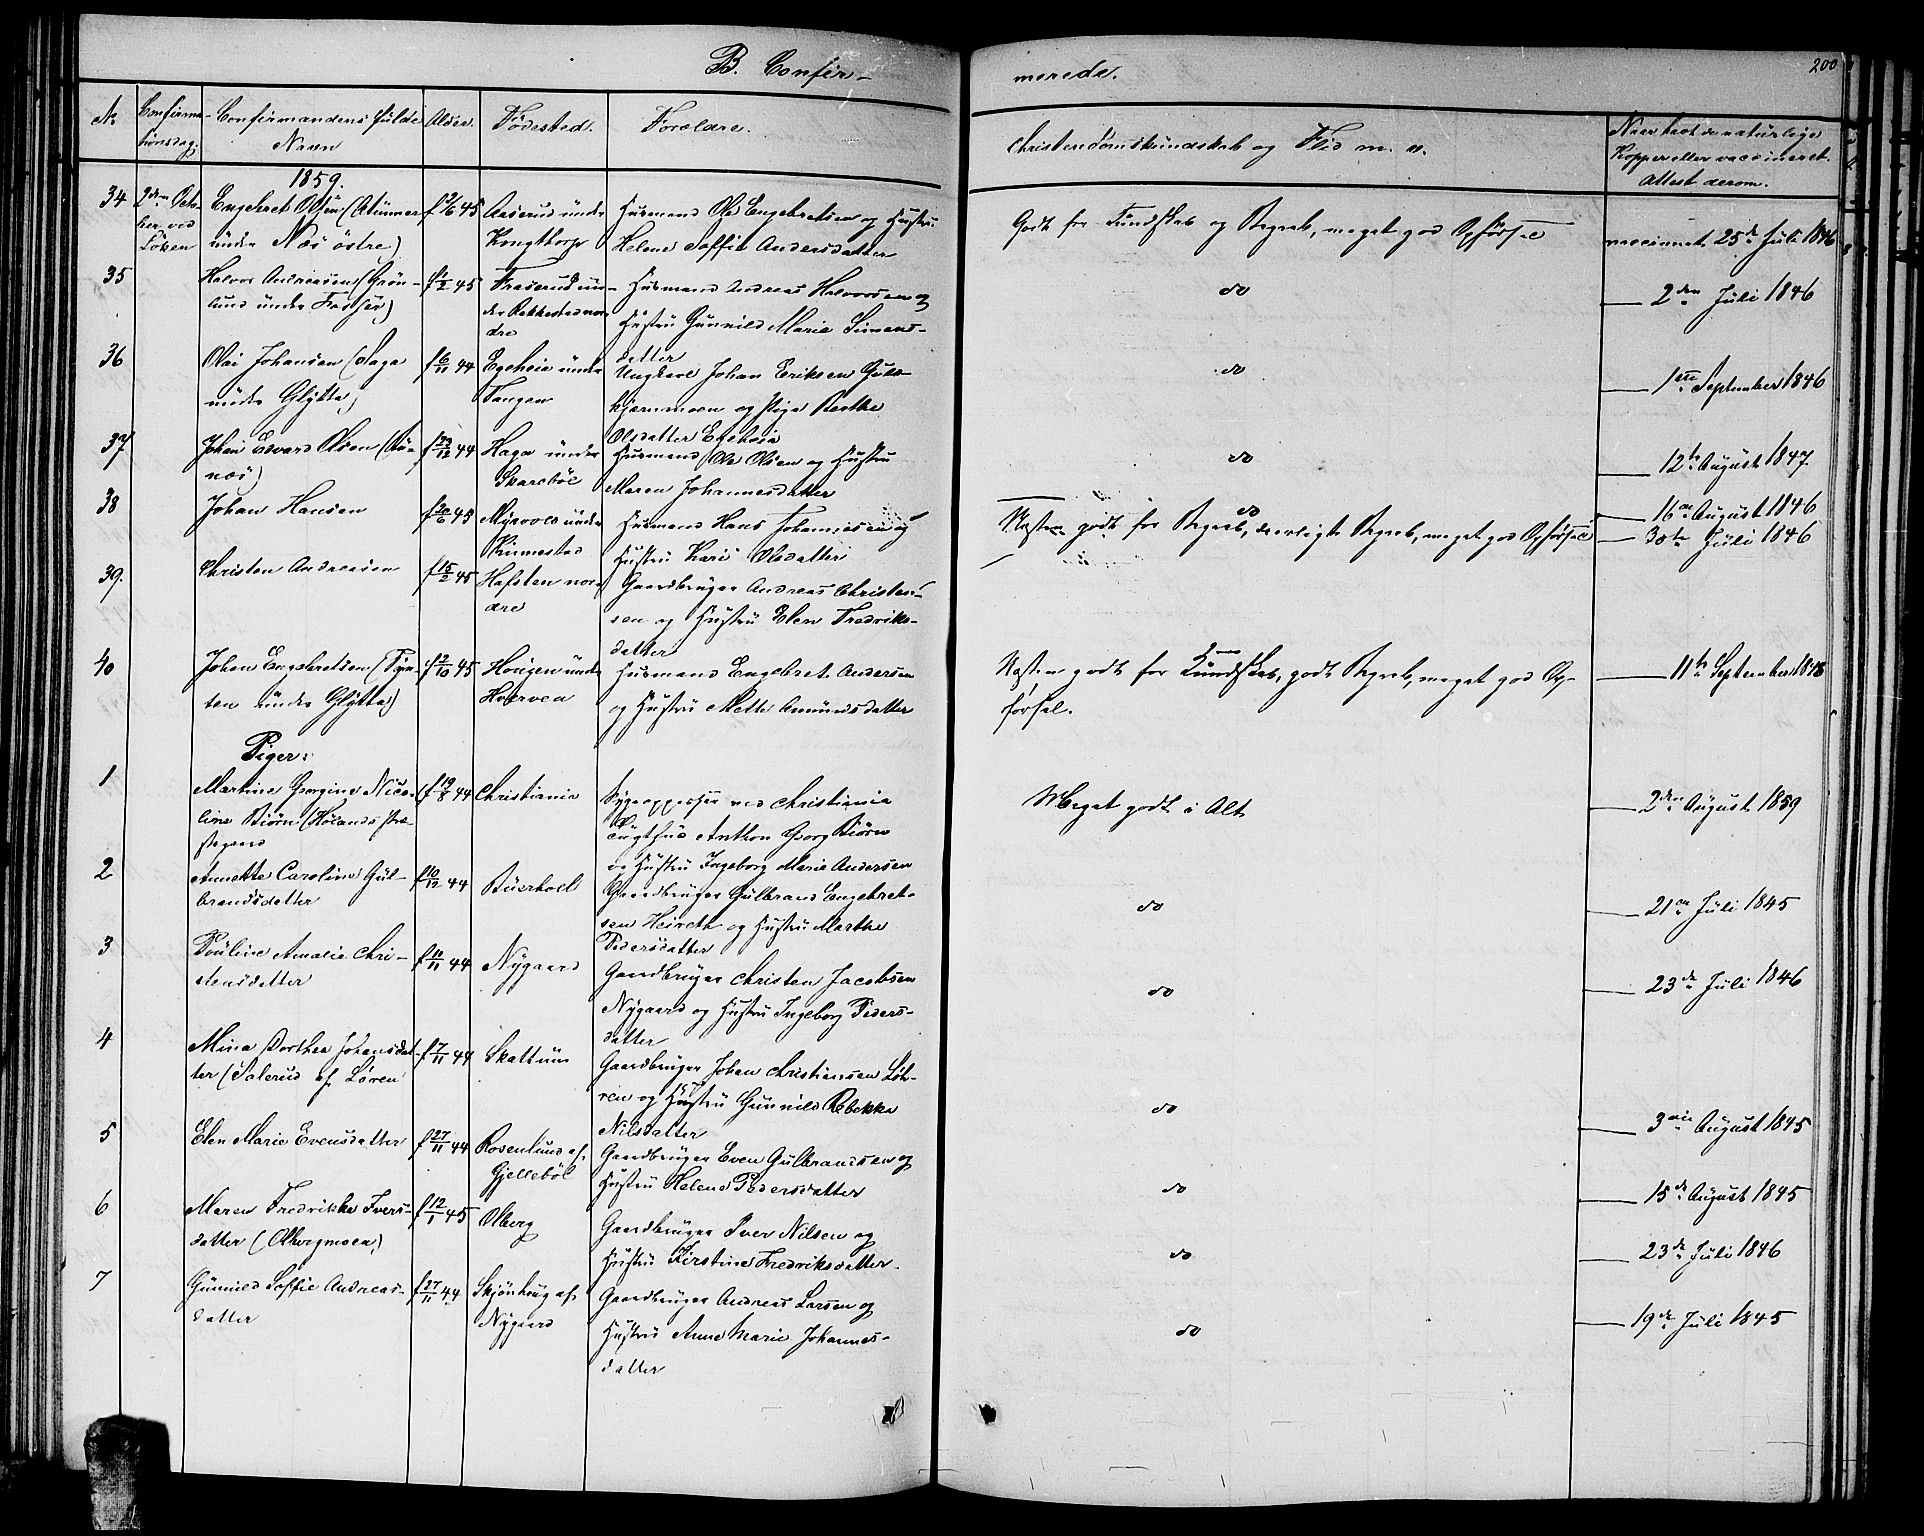 B. Confir-
merede.
200
No
Confirma-
tionsdag.
Confirmandens fulde
Navn
Alder.
Fødested.
Forældre.
Christendomskundskab og Flid m. v.
Naar havt de naturlige
Kopper eller vaccineret.
Attest derom.
1859.
34
2den Octo-
ber ved
Löken
Engebret Olsen
under Næs östre)
Aaserud under
Kongttorp
Husmand Ole Engebretsen og Hustru
Helene Soffie Andersdatter
Godt for Kundskab og Begreb, meget god Opførsel
vaccineret 25de Juli 1846
35
Halvor Andreasen (Grön-
lund under Fossser)
f 1/2 45
Fraserud un-
der Rakkestad nor-
dre
Husmand Andreas Halvorsen og
Hustru Gunnild Marie Simens-
datter
do
2den Juli 1846
36
Olai Johansen (Haga
under Glÿtta)
f 6/11 44
Egeheia under
Tangen
Ungkarl Johan Eriksen Gul-
kjernmoen og Pige Berthe
Olsdatter Egeheia
do
1ste September 1846
37
Johan Edvard Olsen (Au-
næs)
f 23/12 44
Haga under
Skareböl
Husmand Ole Olsen og Hustru
Maren Johannesdatter
do
12te August 1847
38
Johan Hansen
f 20/6 45
Myrvold under
Kinnestad
Husmand Hans Johannessen og
Hustru Kari Olsdatter
do
16de August 1846
39.
Christen Andreasen
f 15/2 45
Hafsten nor-
dre
Gaardbruger Andreas Christen-
sen og Hustru Elen Fredriks-
datter
Næsten godt for Begreb, daarligt Begreb, meget god Opførsel
30te Juli 1846
40
Johan Engebretsen (Tyn-
ten under Glÿtta)
f 2/10 45
Hougen under
Hverven
Husmand Engebret Andersen
og Hustru Mette Amundsdatter
Næsten godt for Kundskab, godt Begreb, meget god Op-
førsel.
11te September 1846
Piger:
1
Martine Georgine Nico-
line Biørn (Hølands Præ-
stegaard
f 19/8 44
Christiania
Sygeopasser ved Christiania
Tugthus Anthon Georg Biørn
og Hustru Ingeborg Marie Andersen
Meget godt i Alt
2den August 1859
2
Annette Caroline Gul-
brandsdatter
f 10/12 44
Buerhoel
Gaardbruger Gulbrand Engebret-
sen Heireth og Hustru Marthe
Pedersdatter
do
21de Juli 1845
3
Pouline Amalie Chri-
stensdatter
f 10/11 44
Nygaard
Gaardbruger Christen Jacobsen
Nygaard og Hustru Ingeborg Peders-
datter
do
23de Juli 1846
4
Mina Dorthea Johansdat-
ter (Salerud af Løren
f 7/11 44
Skattum
Gaardbruger Johan Christiansen Løh-
ren og Hustru Gunnild Rebekka
Nilsdatter
do
3die August 1845
5
Elen Marie Evensdatter
f 27/11 44
Rosenlund af
Gjelleböl
Gaardbruger Even Gulbrandsen og
Hustru Helene Pedersdatter
do
15de August 1845
6
Maren Fredrikke Ivers-
datter (Olbergmoen)
f 12/1 45
Olberg
Gaardbruger Iver Nilsen og
Hustru Kirstine Fredriksdatter
do
23de Juli 1846
7
Gunnild Soffie Andreas-
datter
f 27/11 44
Skjönhoug af
Nygaard
Gaardbruger Andreas Larsen og
Hustru Anne Marie Johannes-
datter
do
19de Juli 1845